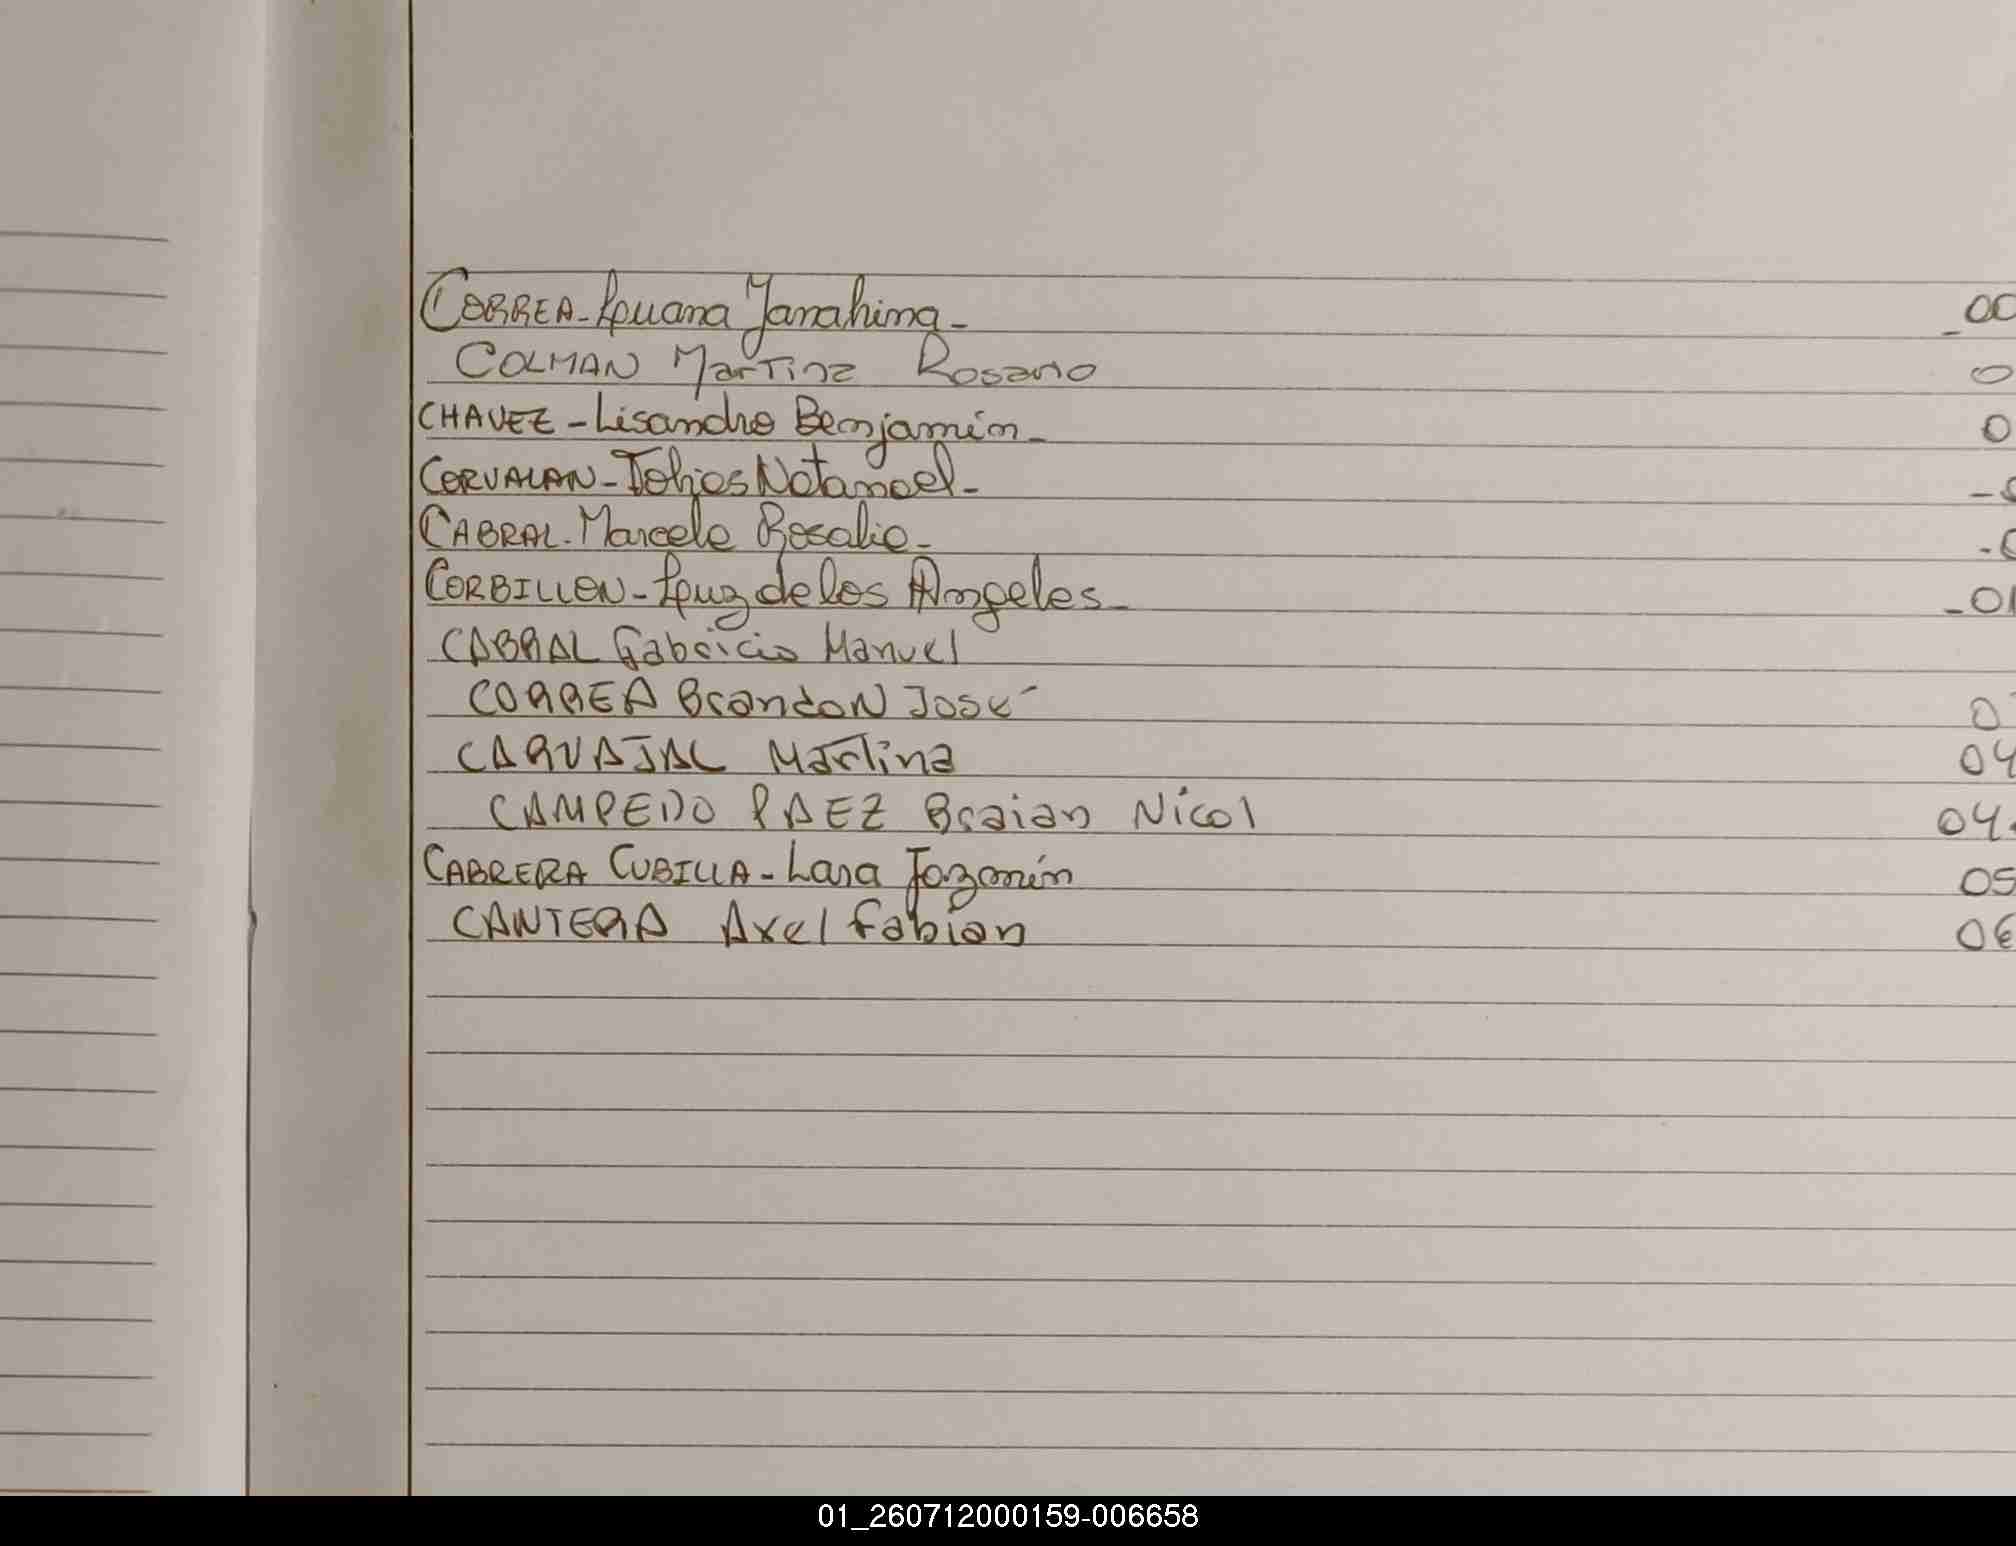 CORREA - Luana Yanahina - 00
COLMAN Martina Rosario 0
CHAVEZ - Lisandro Benjamín - 0
CORVALAN - Tobias Natanael -
CABRAL - Marcela Rosalia -
CORBILLON - Luz de los Angeles - 01
CABRAL Fabricio Manuel
CORREA Brandon José 0
CARVAJAL Martina 04
CAMPEDO PAEZ Braian Nicol 04
CABRERA CUBILLA - Lara Jazmín 05
CANTERA Axel Fabian 06
01_260712000159-006658